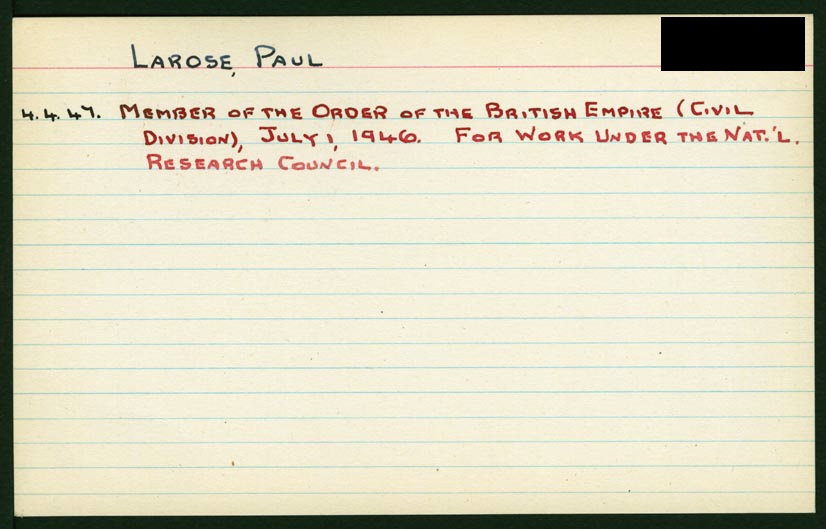 LAROSE, PAUL
4.4.47. MEMBER OF THE ORDER OF THE BRITISH EMPIRE (CIVIL
DIVISION), JULY 1, 1946. FOR WORK UNDER THE NAT.'L.
RESEARCH COUNCIL.